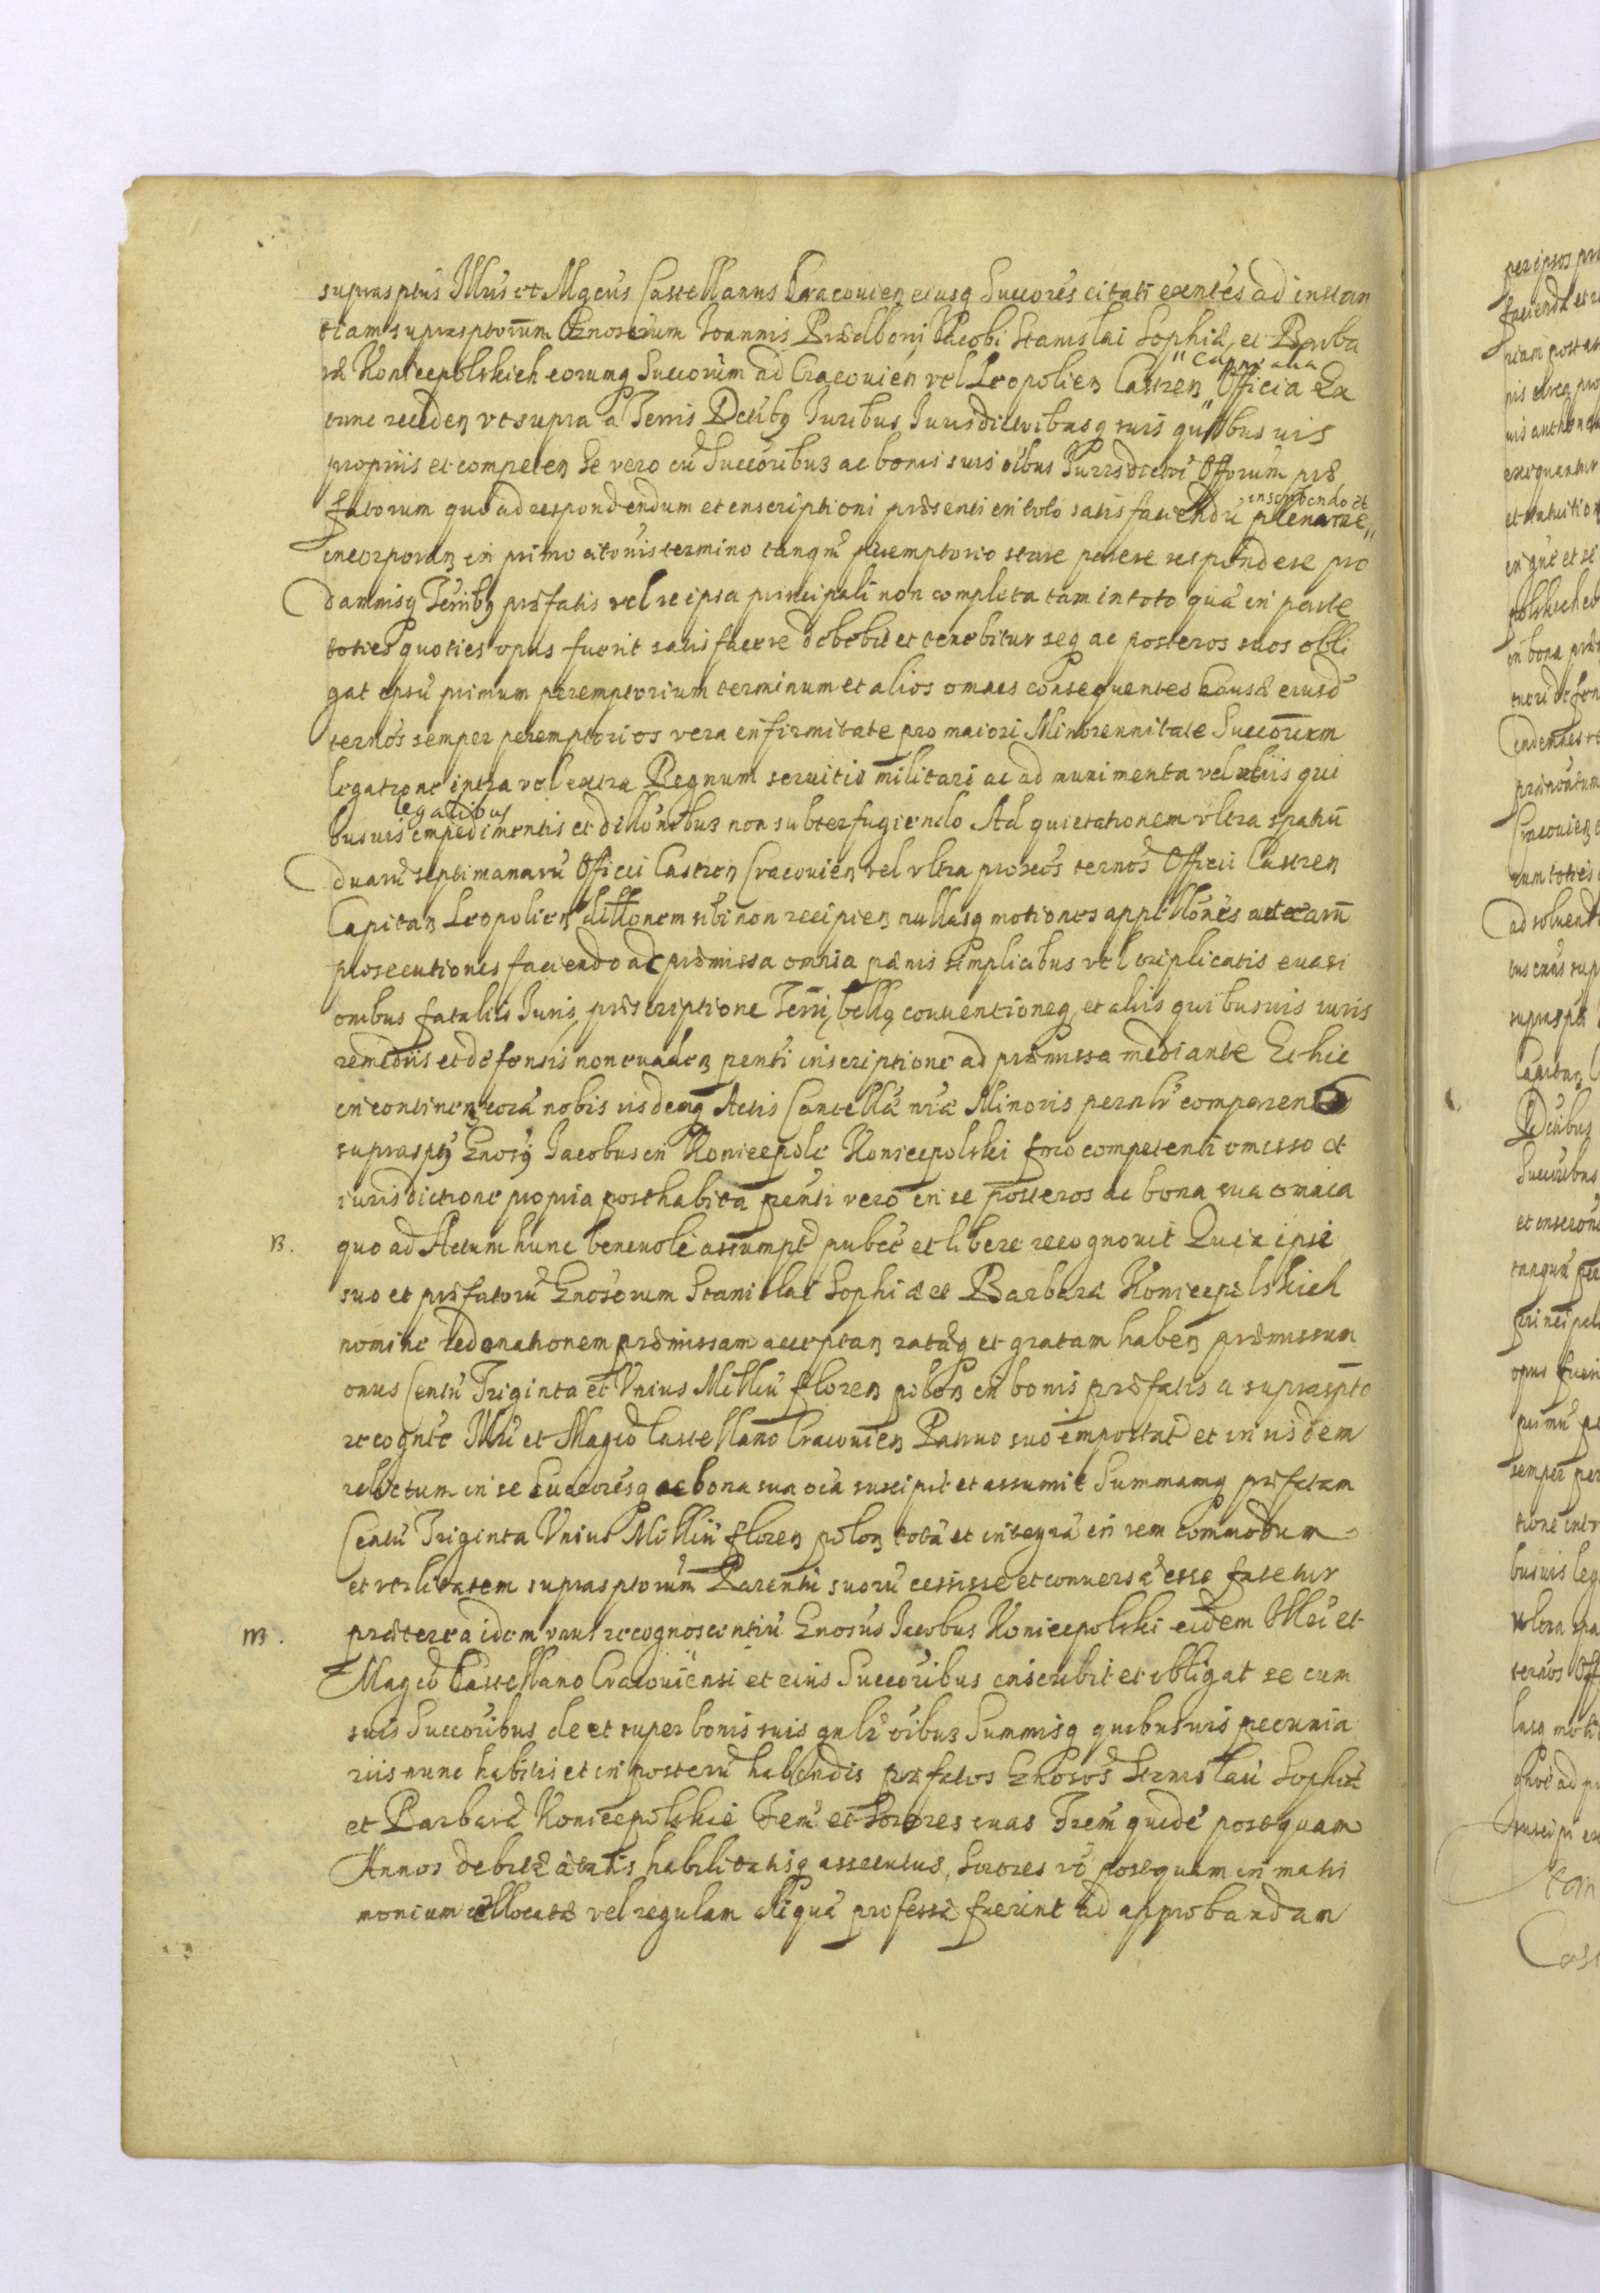 suprasptus Illris et Mgcus Castellanus Cracouien eiusq Succores citati exentes ad instan
tiam supraspptorum Gnosorum Joannis Przedbori Jacobi Stanislai Sophiæ et Barba
ræ Koniecpolskich eorumq Succorum ad Cracouien vel Leopolien Castren " Capnealia Officia Ex
tunc receden vt supra a Terris Dctibq Juribus Jurisdictoibusq suis quibusuis
propriis et competen Se vero cu Succoribus ac bonis suis oibus Jurisdictoi Offorum præ
fatorum quo ad respondendum et inscriptioni præsenti in toto satisfaciendu inscribendo et plenarie "
incorporan in primo citonis termino tanqm peremptorio stare parere respondere pro
damnisq Terribq præfatis vel re ipsa principali non completa tam in toto qua in parte
toties quoties opus fuerit satisfacere debebit et tenebitur seq ac posteros suos obli
gat ipsu primum peremptorium terminum et alios omnes consequentes Causæ eiusd
ternos semper peremptorios vera infirmitate pro maiori Minorennitate Succorum
legatione intra vel extra Regnum seruitio militari ac ad munimenta vel aliis qui
busuis legalibus impedimentis et dillonibus non subterfugiendo Ad quietationem vltra spatiu
duaru septimanaru Officii Castren Cracouien vel vltra proxos ternos Officii Castren
Capitan Leopolien dillonem sibi non recipien nullasq motiones appellones aut earu
prosecutiones faciendo ac præmissa omnia pænis simplicibus vel triplicatis euasi
onibus fataliis Juris præscriptione Terri, bellq conuentioneq et aliis quibusuis iuris
remediis et defensis non euaden pnti inscriptione ad præmissa mediante Et hic
in continen cora nobis iisdemq Actis Cancellæ nræ Minoris pernlr comparens
supraspq Gnosq Jacobus in Koniecpole Koniecpolski foro competenti omisso et
iurisdictione propria posthabita pnti vero in se posteros ac bona sua omnia
B. quo ad Actum hunc beneuole assumpt publce et libere recognouit Quia ipse
suo et præfatoru Gnosorum Stanislai Sophiæ et Barbaræ Koniecpolskich
nomine redonationem præmissam acceptan rataq et gratam haben præmissum
onus Centu Triginta et Vnius Milliu floren polon in bonis præfatis a supraspto
recognte Illri et Magco Castellano Cracouien Patruo suo importat et in iisdem
relictum in se Succoresq ac bona sua oia suscipit et assumit Summamq præfatam
Centu Triginta Vnius Milliu floren polon tota et integra in rem commodum
et vtilitatem supraspptorum Parentu suoru cessisse et conuersa esse fatetur
m. præterea idem vnus recognoscentiu Gnosus Jacobus Koniecpolski eidem Illri et
Magco Castellano Cracouiensi et eius Succoribus inscribit et obligat se cum
suis Succoribus de et super bonis suis gnlr oibus Summisq quibusuis pecunia
riis nunc habitis et in posteru habendis præfatos Gnosos Stanislau Sophia
et Barbara Koniecpolskie Frem et Sorores suas Frem quide postquam
Annos debitæ ætatis habilitatisq assecutus, Sorores vo postquam in matri
monium collocatæ vel regulam aliqua professæ fuerint ad approbandam